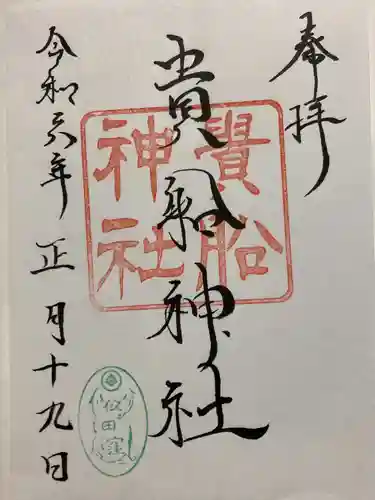 奉拝
貴船神社
貴船神社
令和六年正月十九日
似田窪